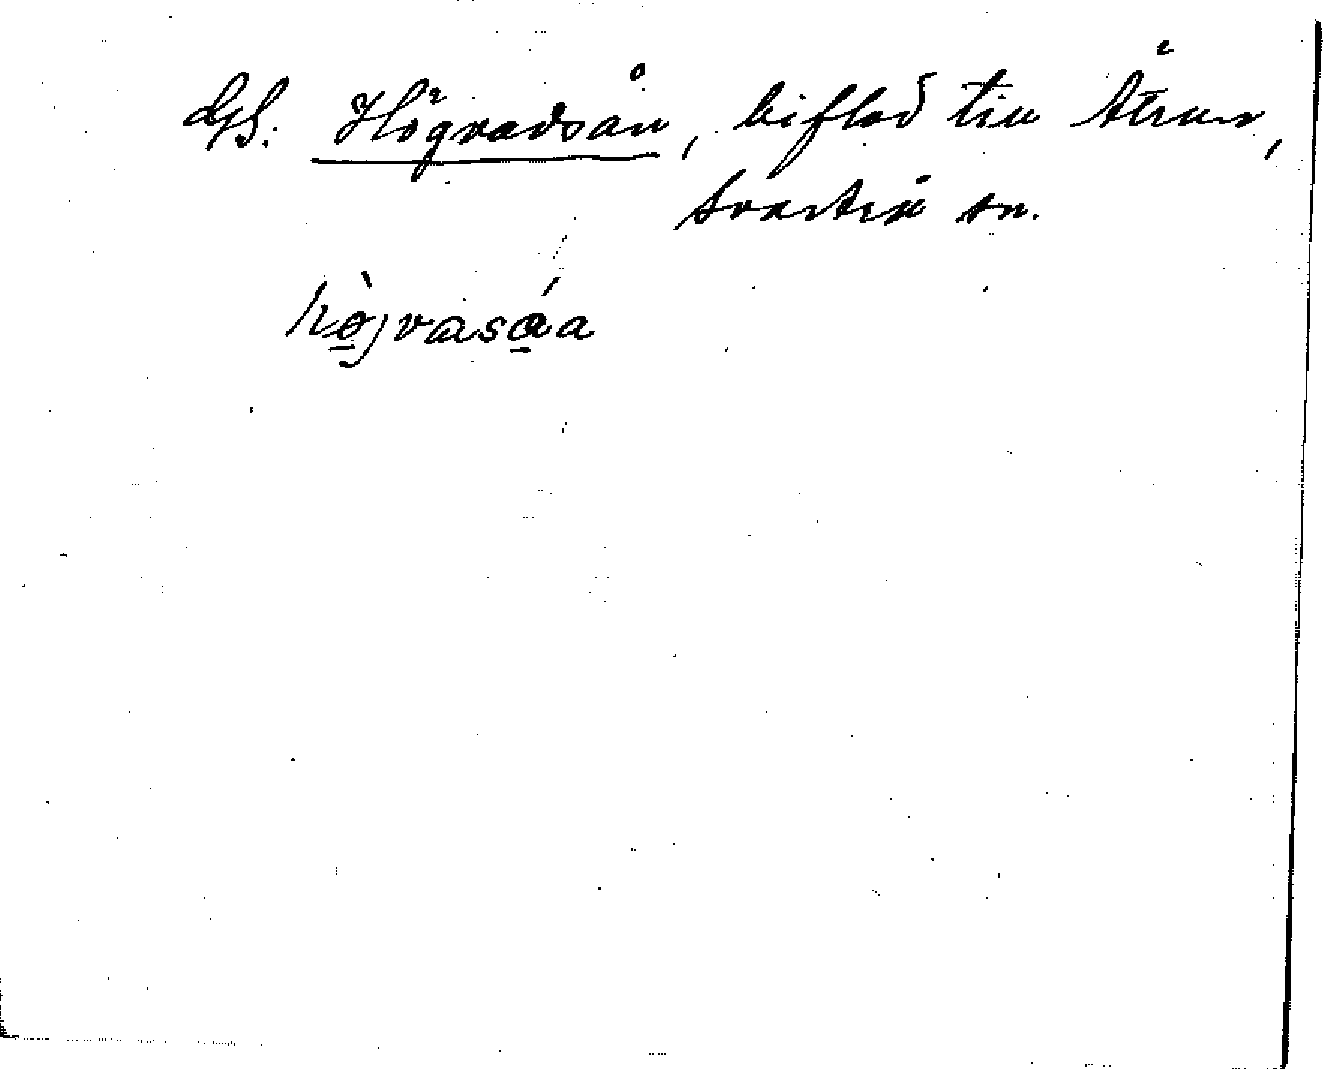 GS. Högvadsån, biflod till Ätran,
Svartrå sn.
hö̀jvasåá̱a